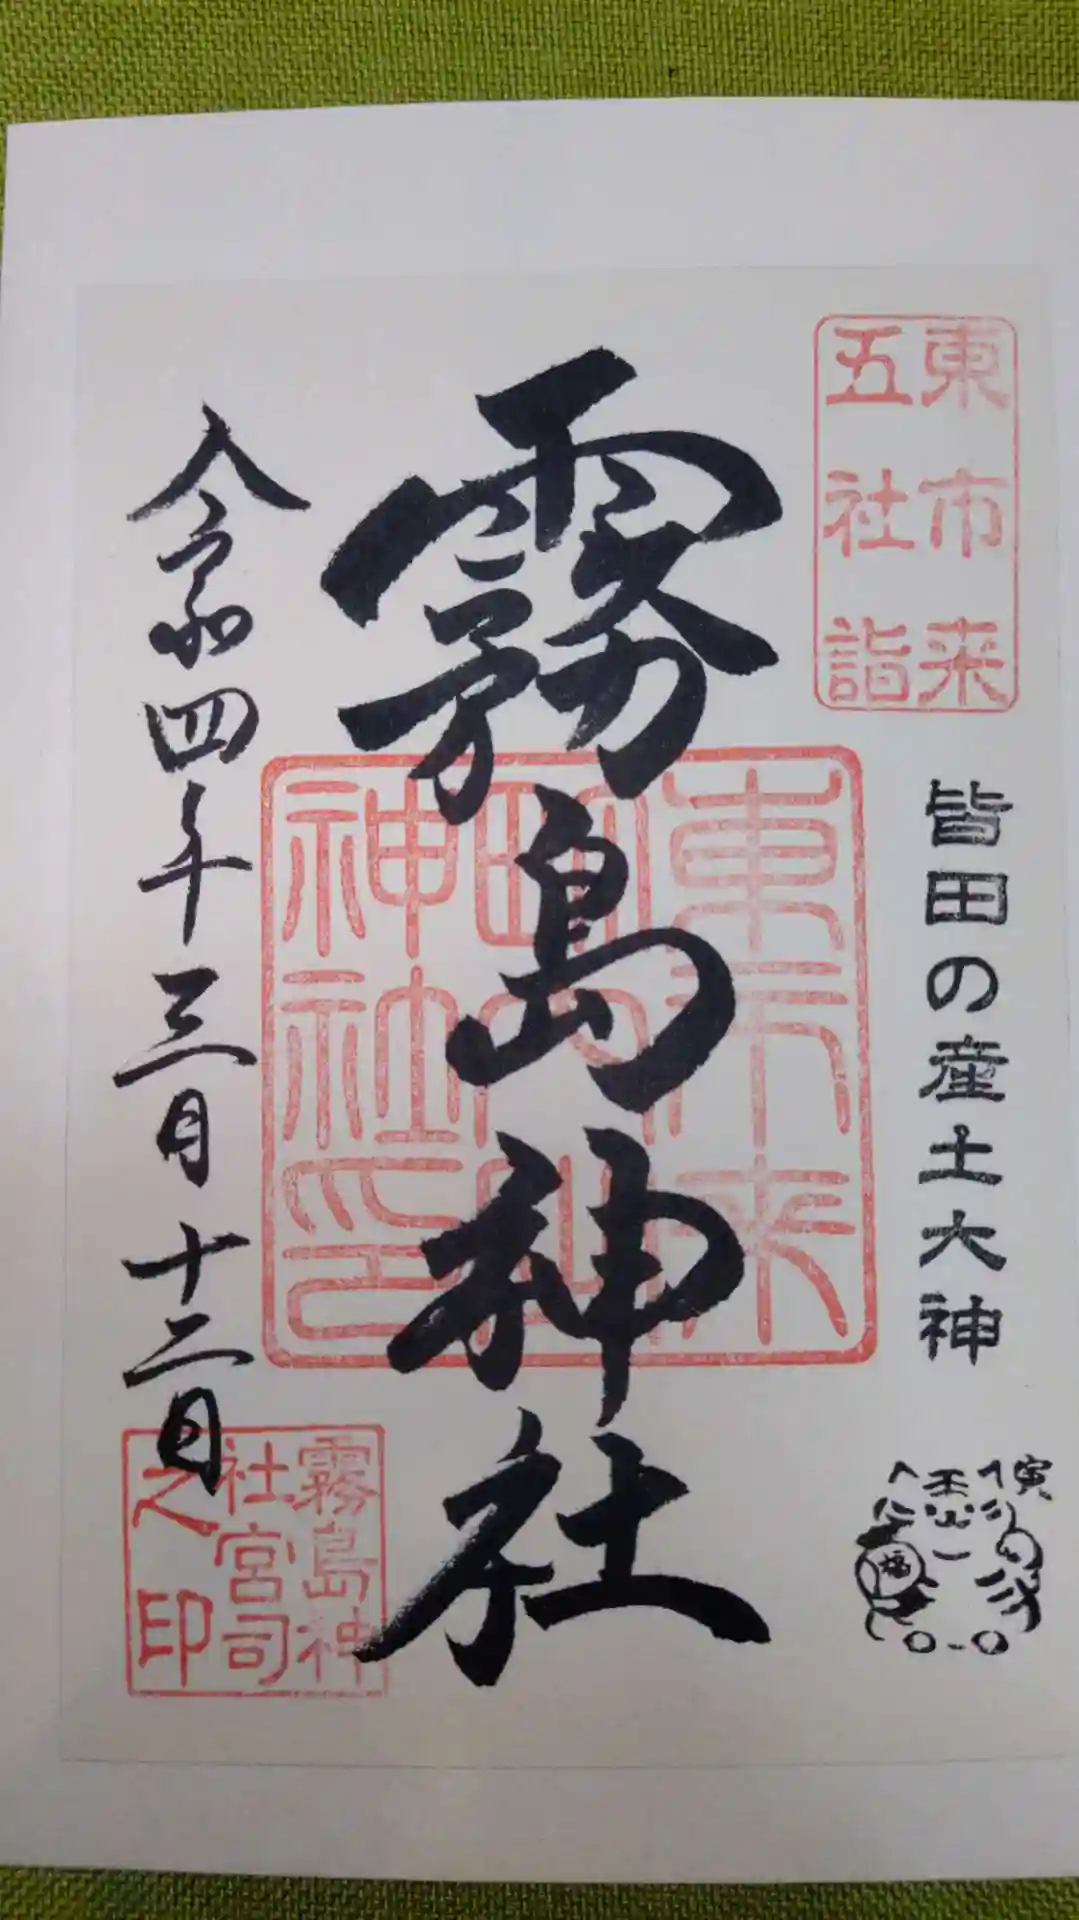 東市来
五社詣
皆田の産土大神
寅
福
霧島神社
東市来
神社印
令和四年三月十二日
霧島神
社宮司
之印